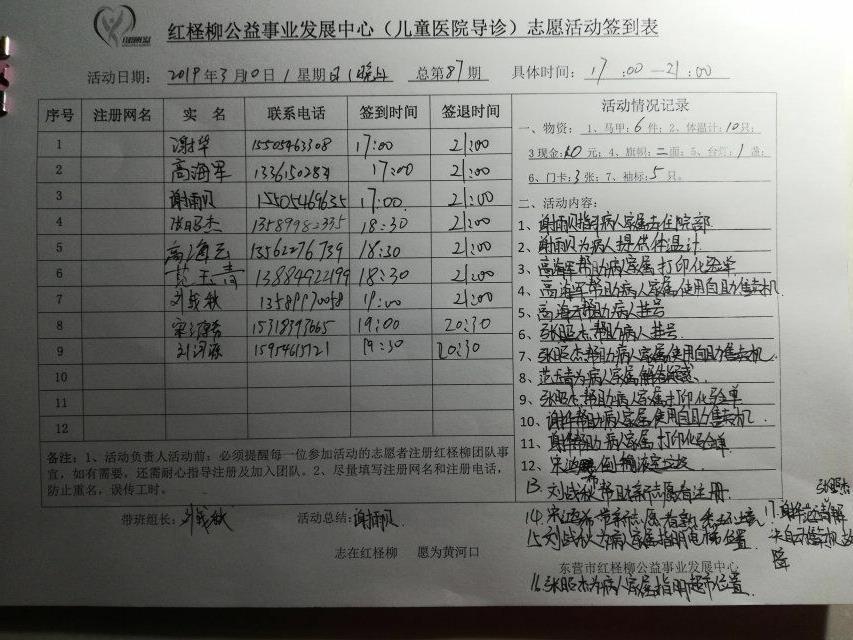 红柽柳公益事业发展中心（儿童医院导诊）志愿活动签到表
活动日期： 2019年3月10日（星期日）晚上 总第87期 具体时间： 17:00—21:00
序号 注册网名 实 名 联系电话 签到时间 签退时间
1 谢华 15505463308 17:00 21:00
2 高海军 17:00 21:00
3 谢雨贝 15505469635 17:00 21:00
4 张昭杰 13589982335 18:30 21:00
5 高海云 13562276739 18:30 21:00
6 范玉青 13884922199 18:30 21:00
7 刘战秋 13589970058 19:00 21:00
8 15318393665 19:00 20:30
9 15954615721 19:30 20:30
10
11
12
备注：1、活动负责人活动前：必须提醒每一位参加活动的志愿者注册红柽柳团队事
宜，如有需要，还需耐心指导注册及加入团队。2、尽量填写注册网名和注册电话，
防止重名，误传工时。
带班组长：刘战秋 活动总结：谢雨贝
志在红柽柳 愿为黄河口
活动情况记录
一、物资： 1、马甲：6件；2、体温计：10只；
3现金：10元；4、旗帜：二面；5、台灯：1盏；
6、门卡：3张；7、袖标：5只。
二、活动内容：
1、谢雨贝指引病人家属去住院部
2、谢雨贝为病人提供体温计
3、高海军帮助病人家属打印化验单
4、高海军帮助病人家属使用自助售卖机
5、高海云帮助病人挂号
6、张昭杰帮助病人挂号
7、张昭杰帮助病人家属使用自助售卖机
8、范玉青为病人家属解答疑惑
9、张昭杰帮助病人家属打印化验单
10、谢华帮助病人家属使用自助售卖机
11、谢华帮助病人家属打印化验单
12、
13、刘战秋帮助新志愿者注册
14、宋鸿希带新志愿者熟悉环境
15、刘战秋为病人家属指明电梯位置
东营市红柽柳公益事业发展中心
16、张昭杰为病人家属指明超市位置
张昭杰
17、谢华
障